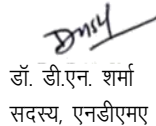 डॉ. डी.एन. शर्मा
सदस्य, एनडीएमए